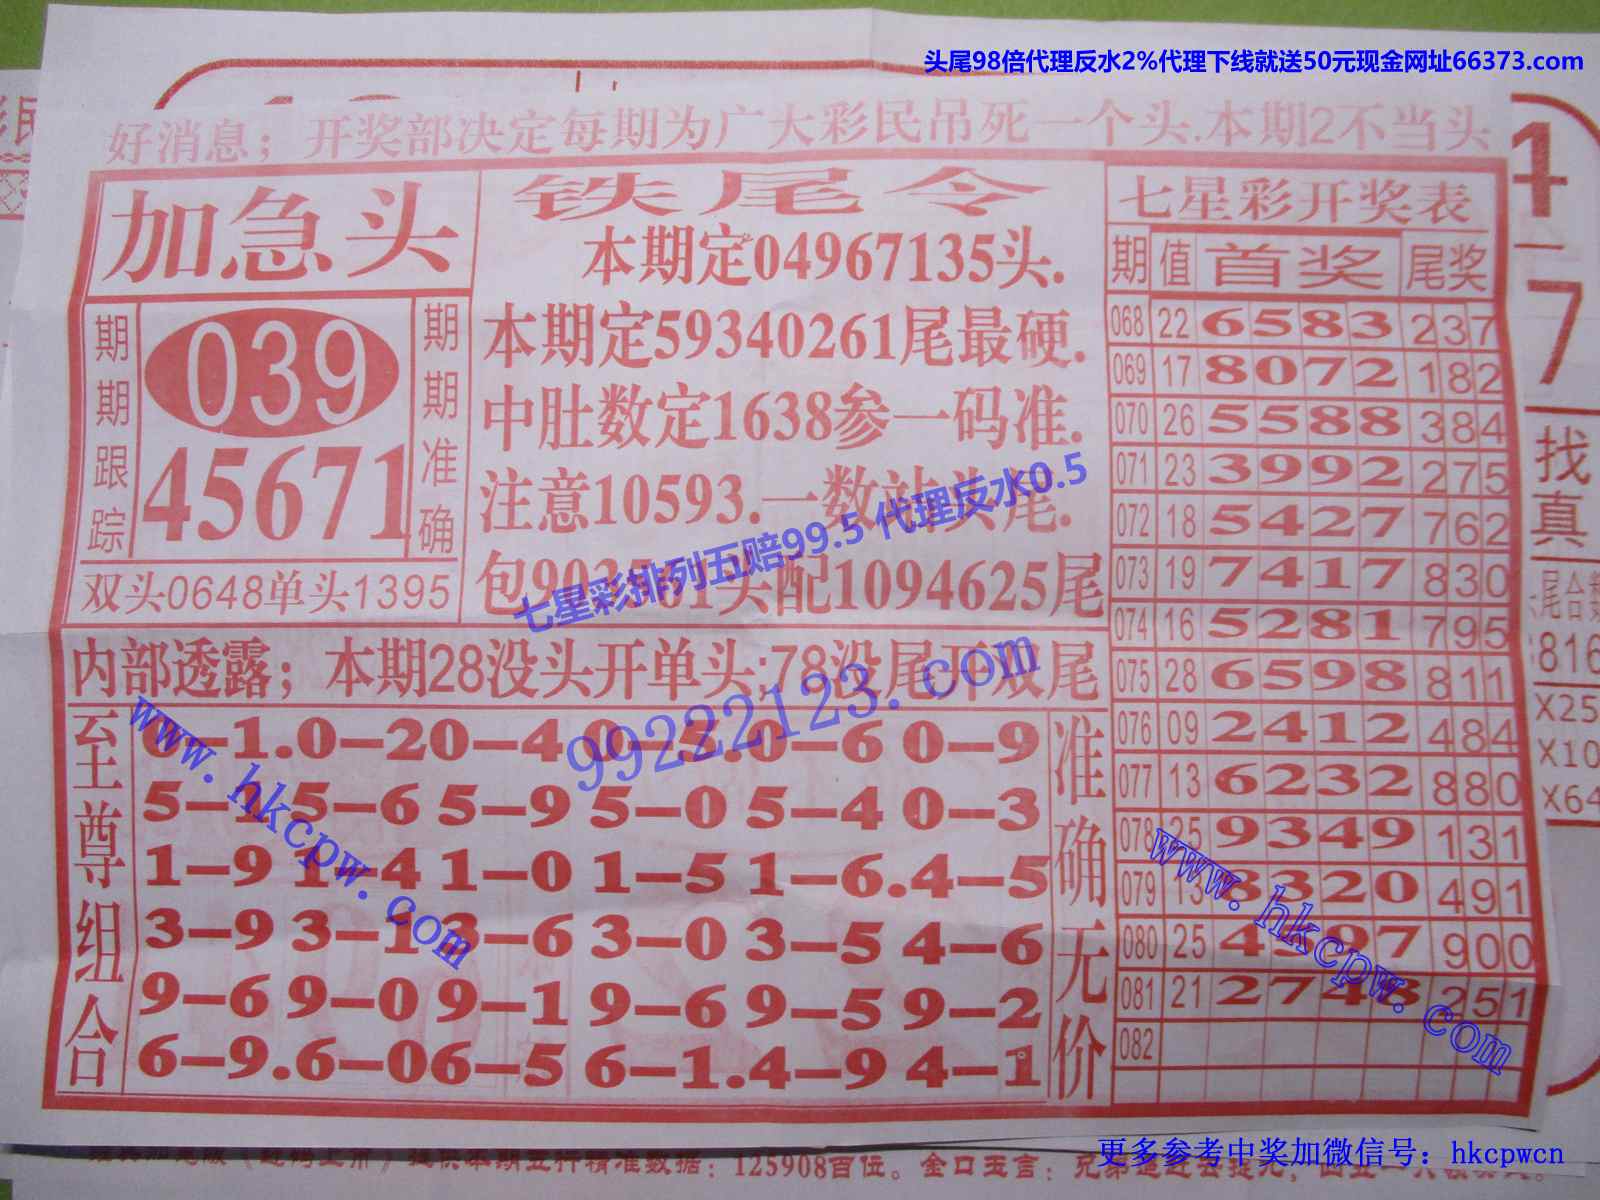 头尾98倍代理反水2%代理下线就送50元现金网址66373.com
好消息；开奖部决定每期为广大彩民吊死一个头.本期2不当头
加急头
期期跟踪
039
45671
期期准确
双头0648单头1395
铁尾令
本期定04967135头.
本期定59340261尾最硬.
中肚数定1638参一码准.
注意10593.一数站头尾.
头配1094625尾
七星彩排列五赔99.5 代理反水0.5
内部透露；本期28没头开单头;78没尾开双尾
99222123.com
至尊组合
0-1.0-20-4 0-0-6 0-9
5-1 5-6 5-9 5-0 5-4 0-3
1-9 1-4 1-0 1-5 1-6.4-5
3-9 3-1 3-6 3-0 3-5 4-6
9-6 9-0 9-1 9-6 9-5 9-2
6-9.6-06-5 6-1.4-9 4-1
准确无价
七星彩开奖表
期 值 首奖 尾奖
068 22 6583 237
069 17 8072 182
070 26 5588 384
071 23 3992 275
072 18 5427 762
073 19 7417 830
074 16 5281 795
075 28 6598 811
076 09 2412 484
077 13 6232 880
078 25 9349 131
079 13 3320 491
080 25 4 97 900
081 21 2748 251
082
www.hkcpw.com
www.hkcpw.com
7
找
真
尾合数
816
X25
X10
X64
提供本期五行精准数据：125908百位。金口玉言：
更多参考中奖加微信号：hkcpwcn